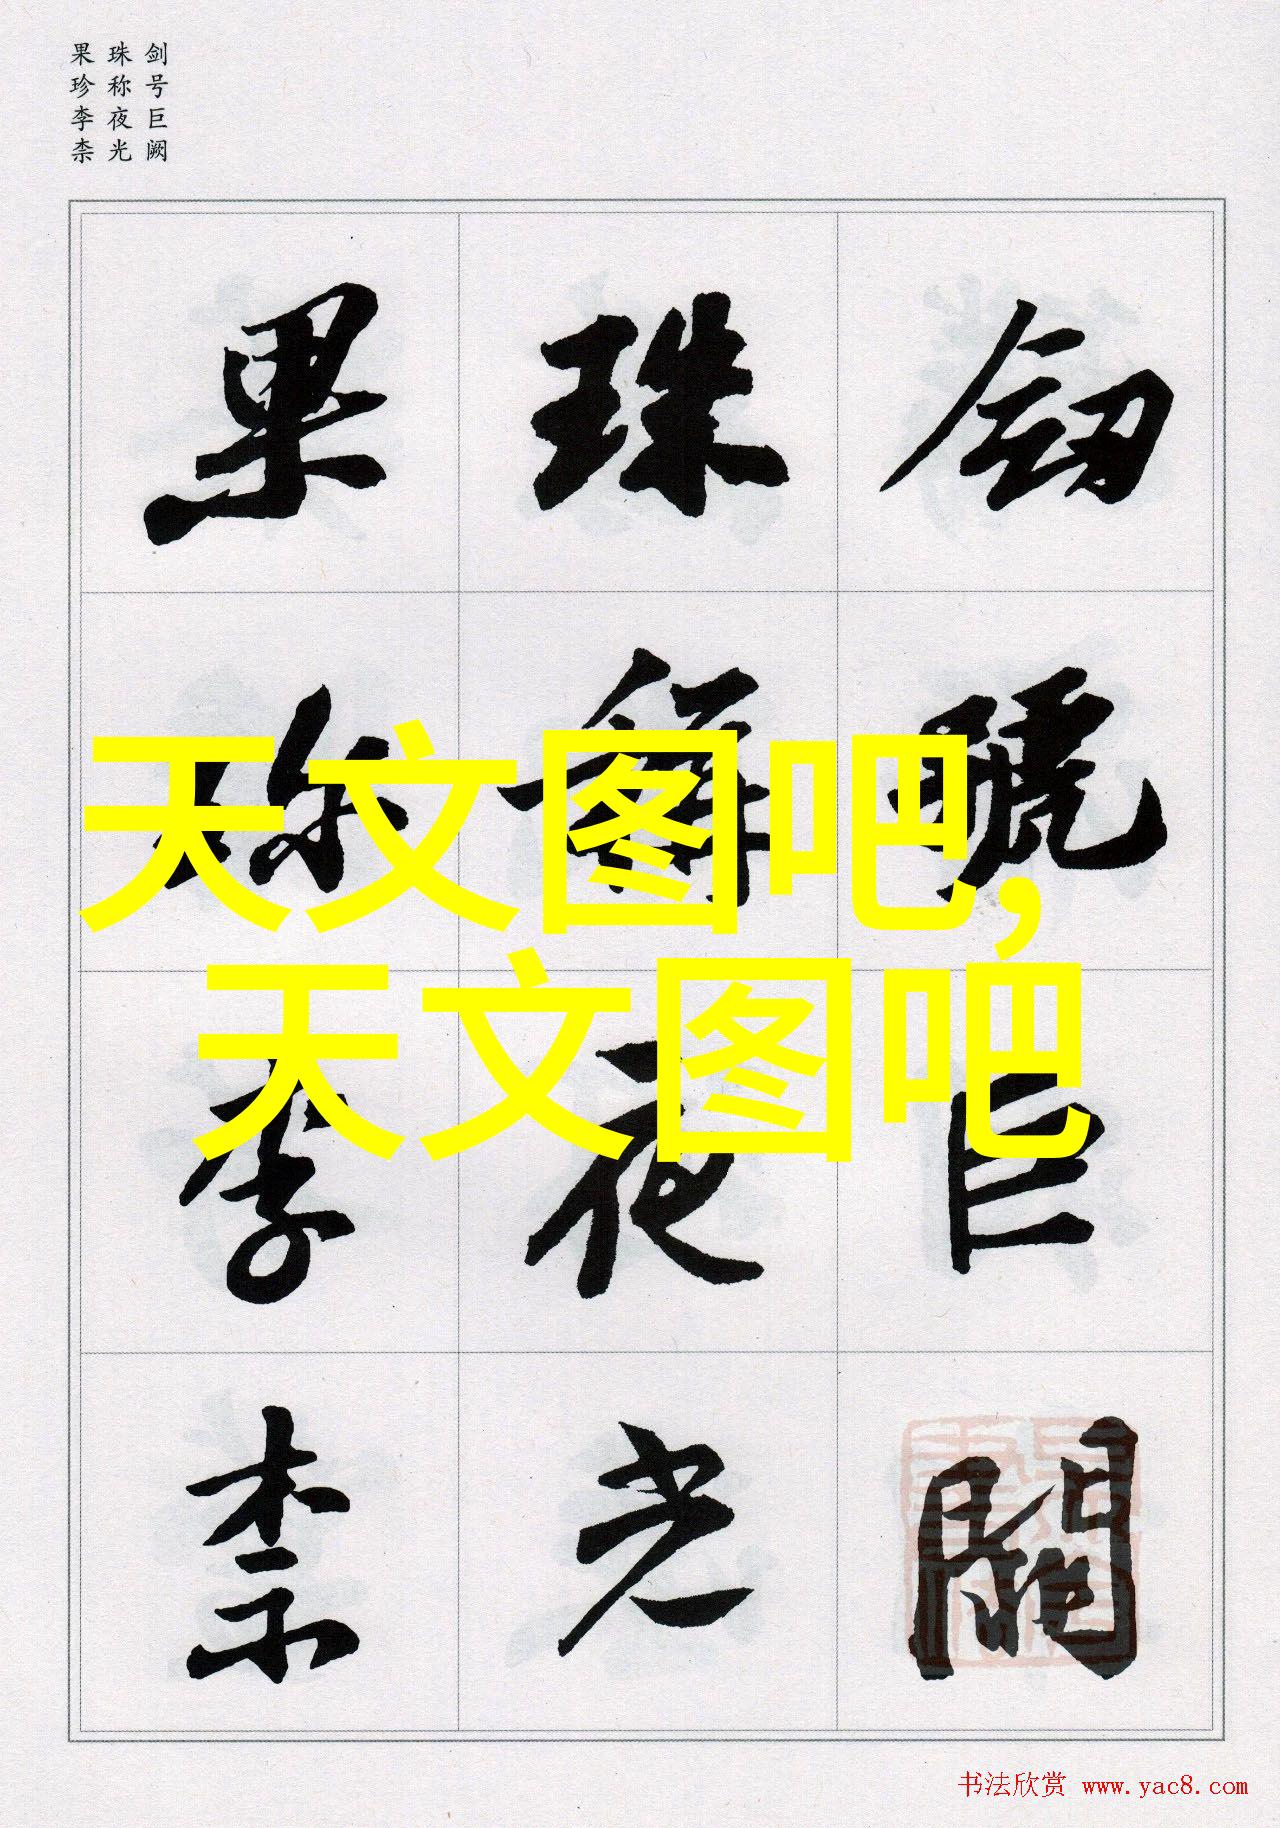 剑号巨阙
珠称夜光
果珍李柰
劒號巨闕
珠稱夜光
果珎李柰
天文图吧,
天文图吧
书法欣赏 www.yac8.com